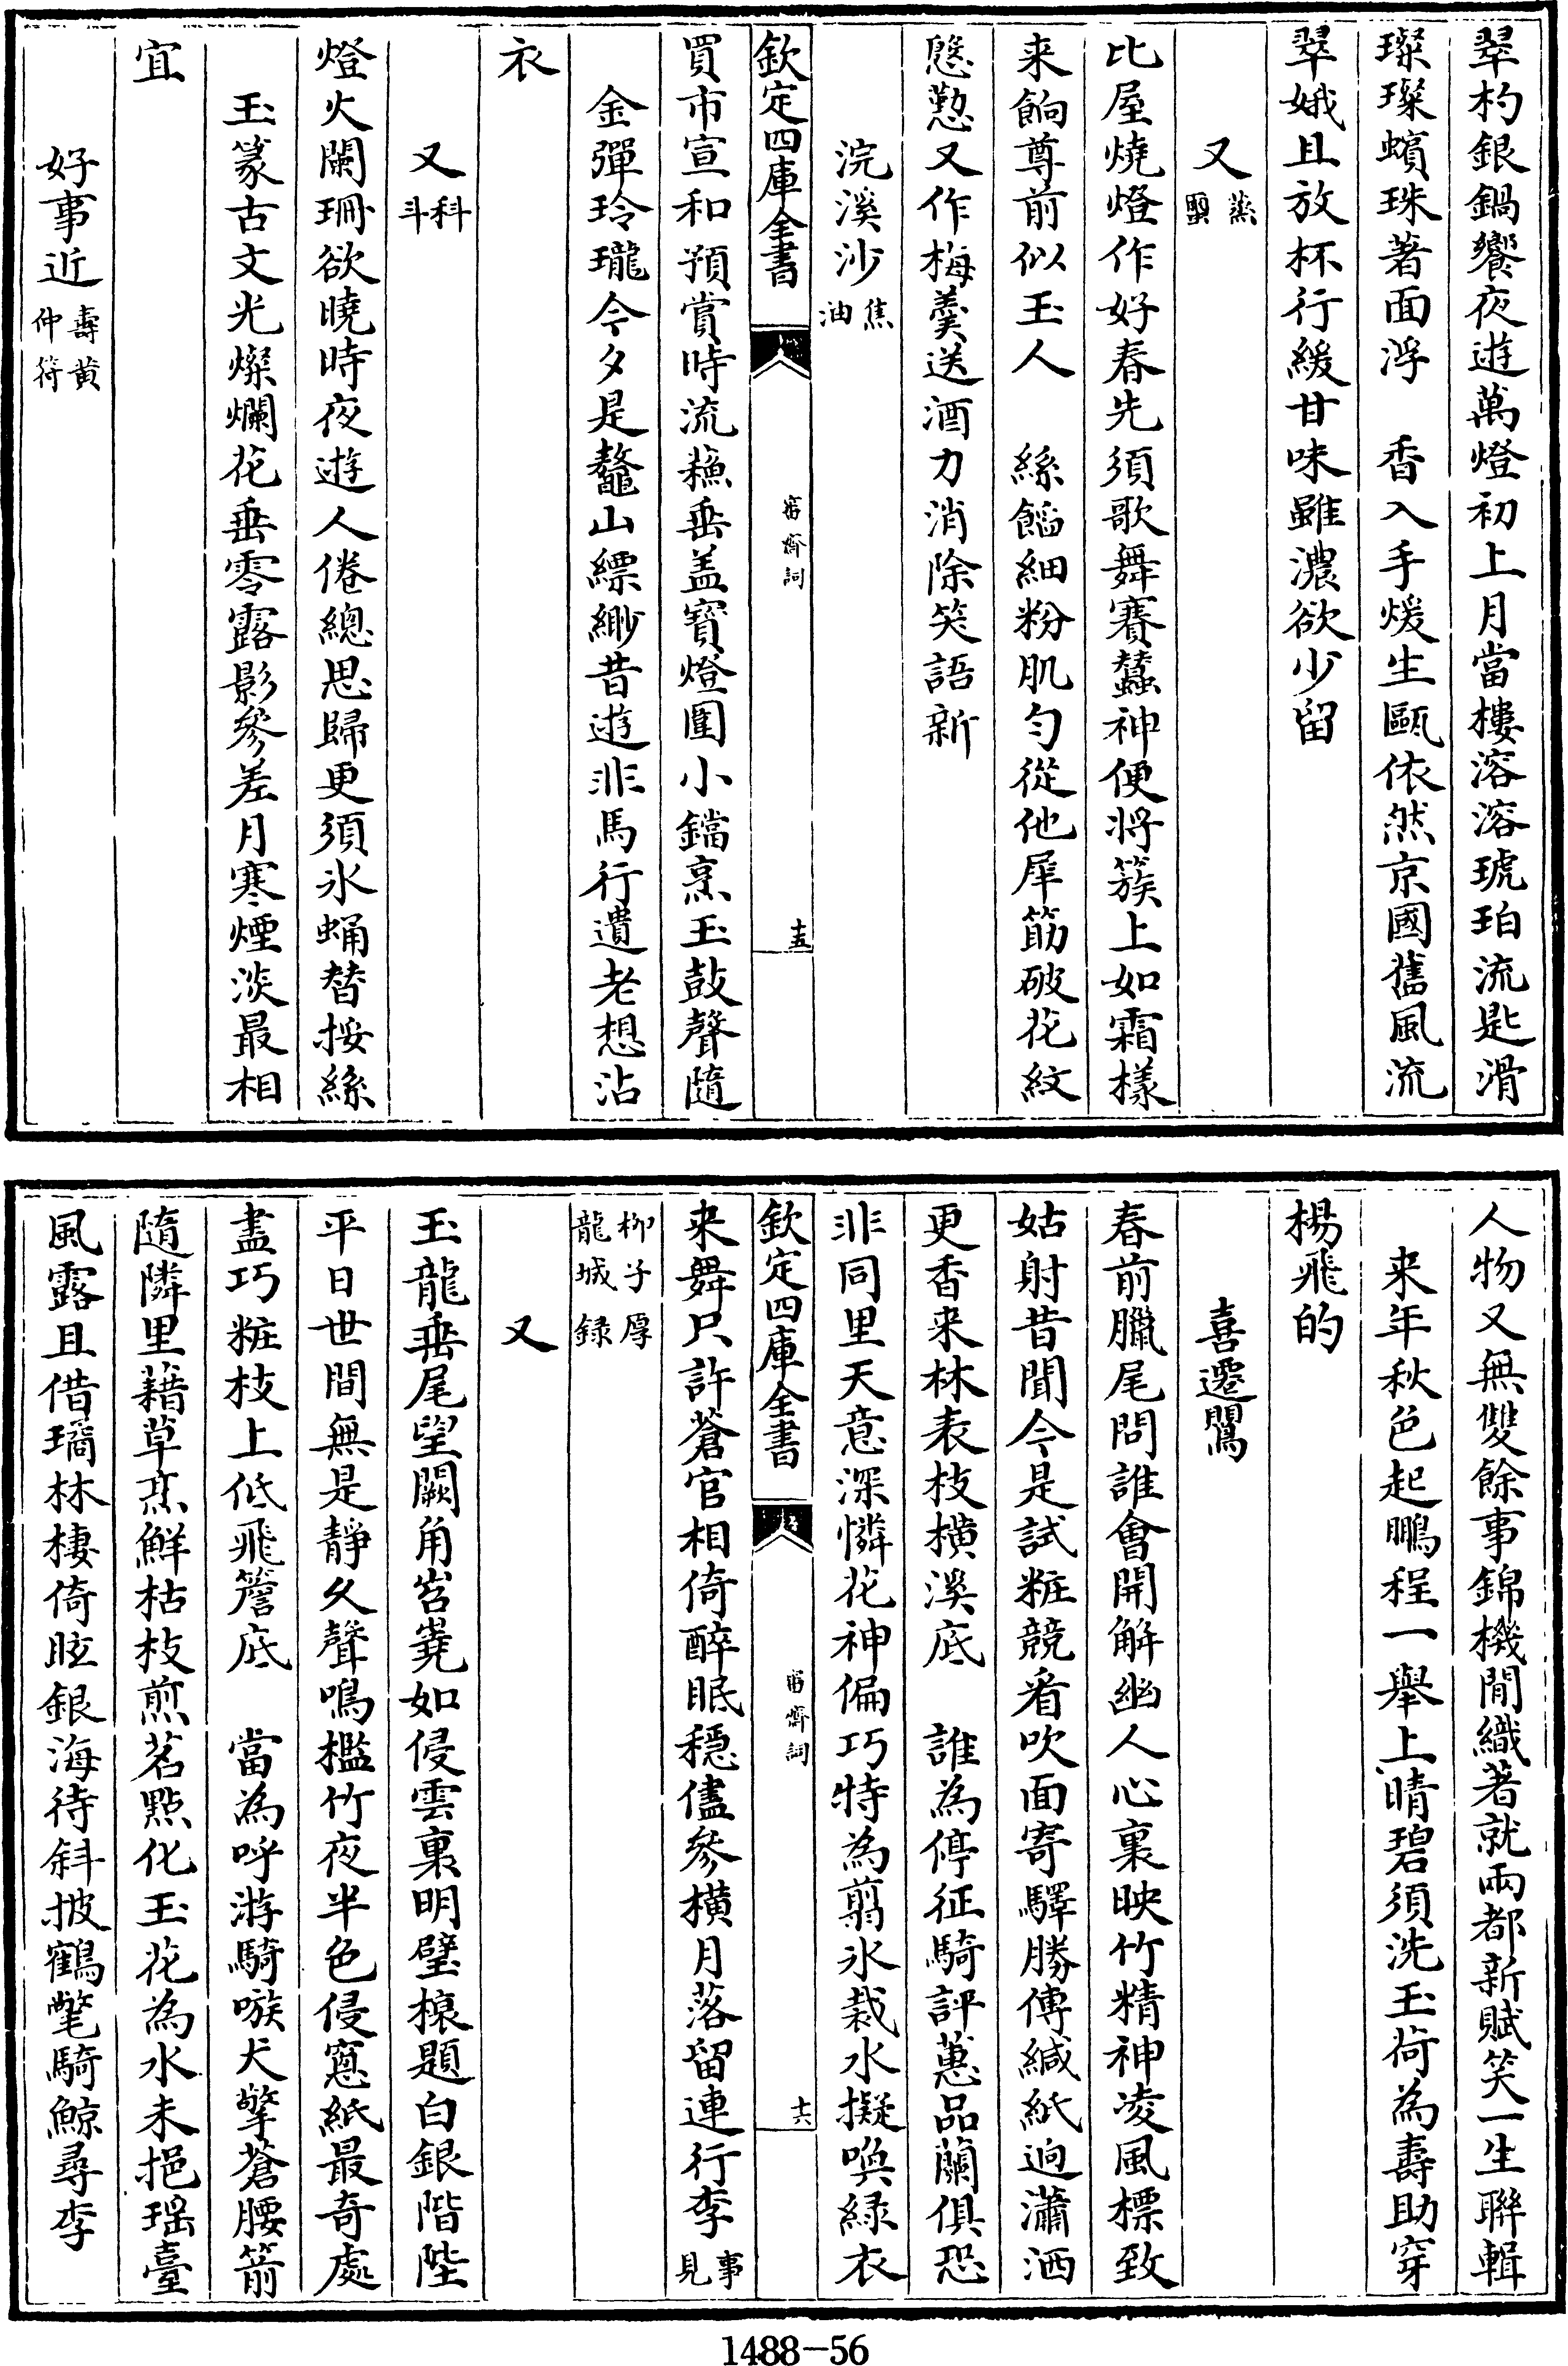 翠杓銀鍋饗夜遊萬燈初上月當樓溶溶琥珀流匙滑
璨璨蠙珠著面浮　香入手煖生甌依然京國舊風流
翠娥且放杯行緩甘味雖濃欲少留
又蒸蠒
比屋燒燈作好春先須歌舞賽蠶神便將簇上如霜樣
来餉尊前似玉人　絲饀細粉肌勻從他犀筯破花紋
慇懃又作梅羹送酒力消除笑語新
浣溪沙焦油
欽定四庫全書
審齋詞
十五
買市宣和預賞時流蘇垂盖寳燈圍小鐺烹玉鼓聲隨
金彈玲瓏今夕是鼇山縹緲昔遊非馬行遺老想沾
衣
又科斗
燈火闌珊欲曉時夜遊人倦總思歸更須氷蛹替挼絲
玉篆古文光燦爛花垂零露影參差月寒煙淡最相
宜
好事近壽黄仲符
人物又無雙餘事錦機閒織著就兩都新賦笑一生聯輯
来年秋色起鵬程一舉上晴碧須洗玉荷為壽助穿
楊飛的
喜遷鸎
春前臘尾問誰會開解幽人心裏映竹精神凌風標致
姑射昔聞今是試粧競看吹面寄驛勝傳緘紙逈瀟洒
更香来林表枝横溪底　誰為停征騎評蕙品蘭俱恐
非同里天意深憐花神偏巧特為剪氷裁水擬喚緑衣
欽定四庫全書
審齋詞
十六
来舞只許蒼官相倚醉眠穏儘參横月落留連行李事見
柳子厚龍城録
又
玉龍垂尾望闕角岧嶤如侵雲裏明壁榱題白銀階陛
平日世間無是靜久聲鳴檻竹夜半色侵窻紙最奇處
盡巧粧枝上低飛簷底　當為呼游騎嗾犬擎蒼腰箭
隨隣里藉草烹鮮枯枝煎茗點化玉花為水未挹瑶臺
風露且借璚林棲倚眩銀海待斜披鶴氅騎鯨尋李
1488-56